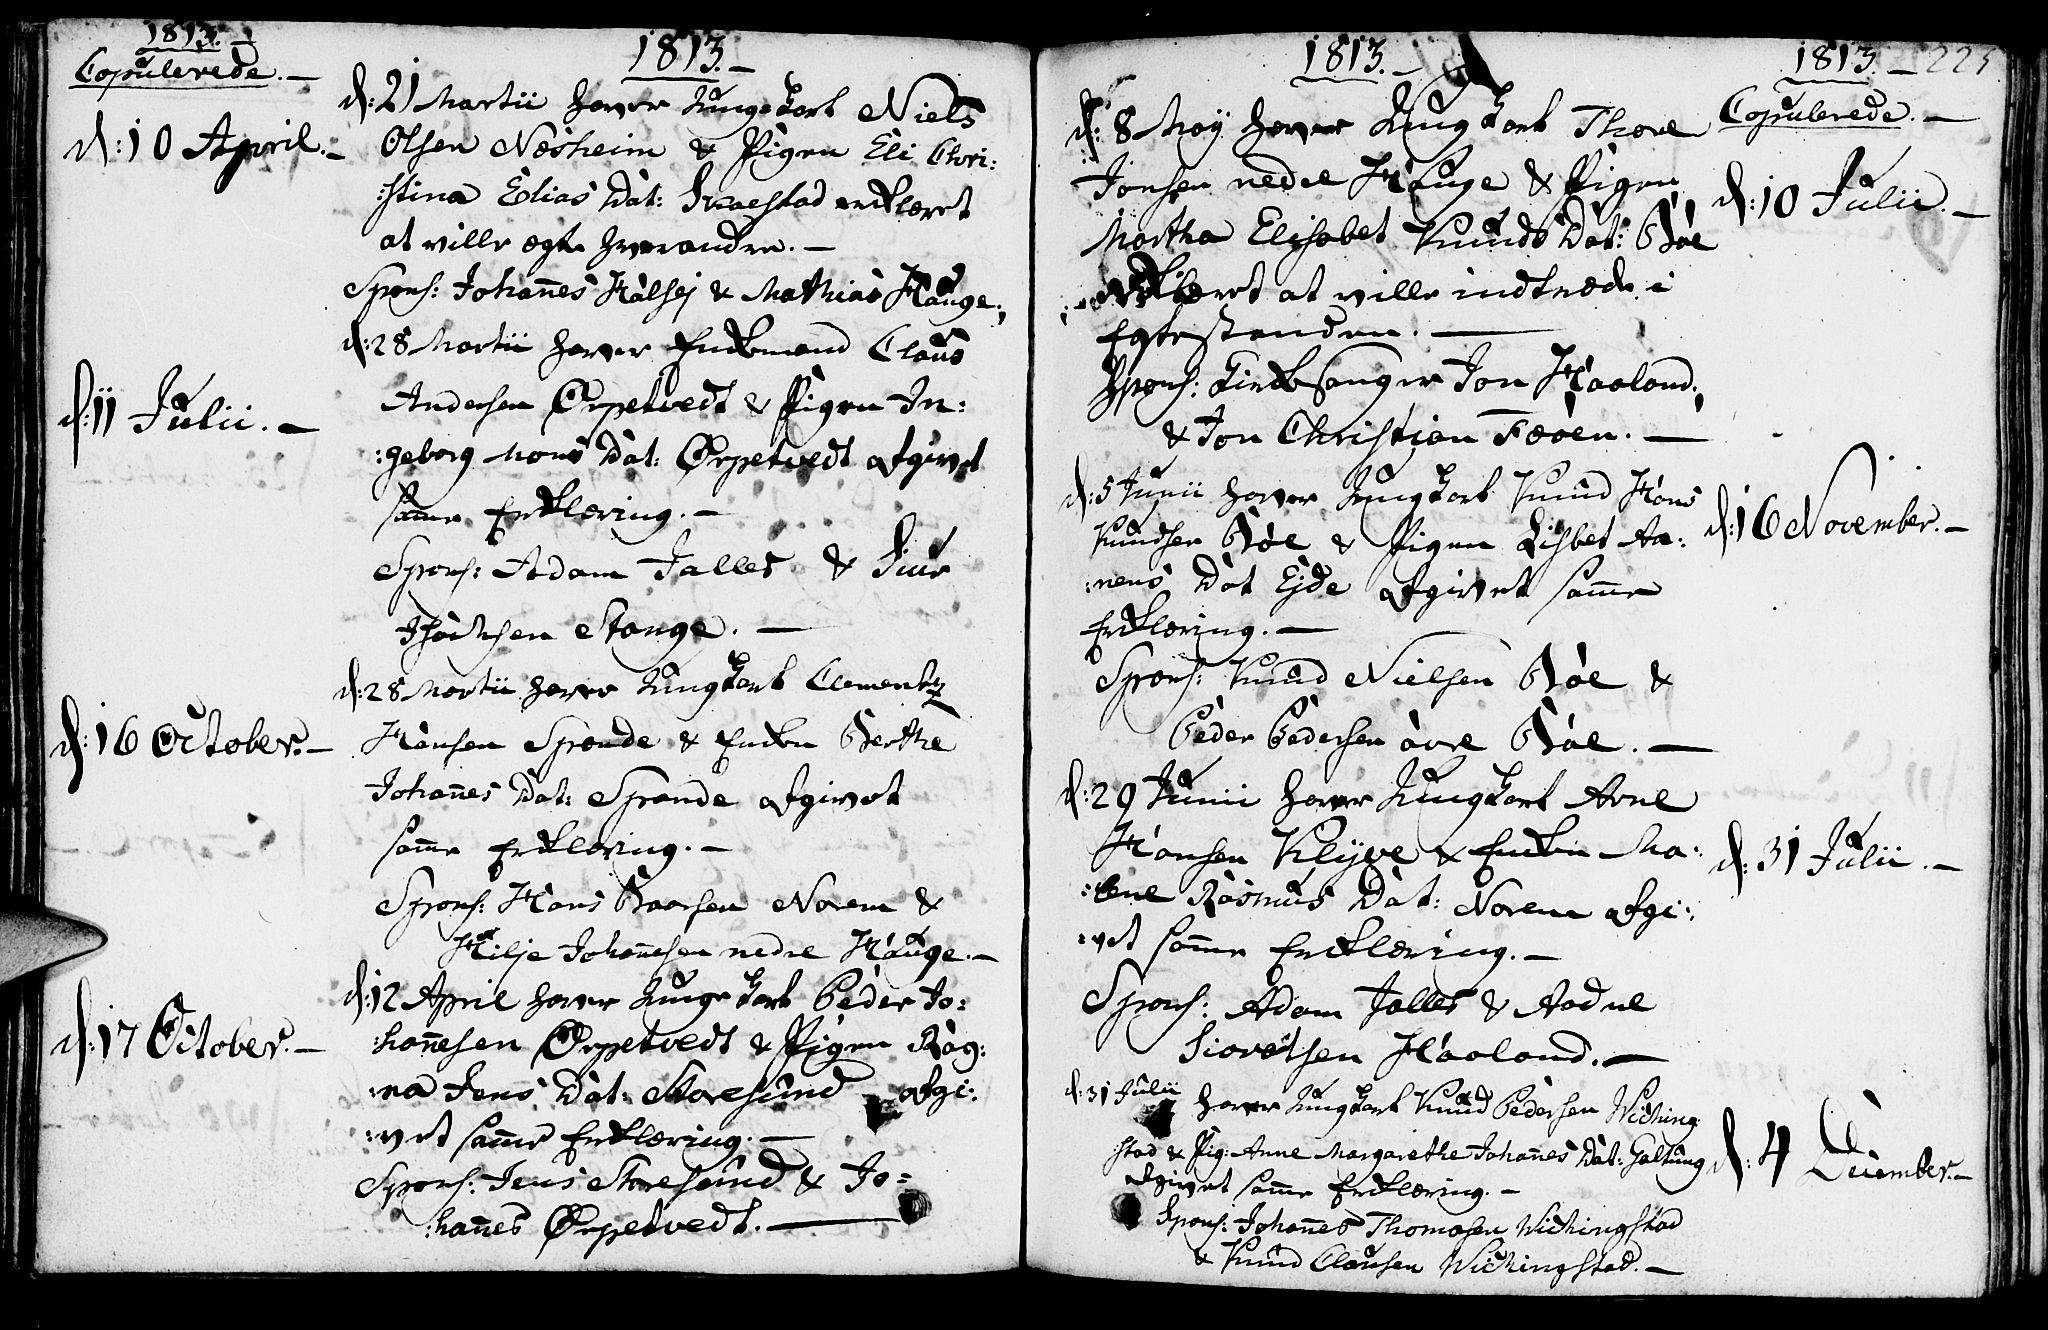 1813. –
Copulerede. –
d: 10 April. –
d: 11 Julii. –
d: 16 October. –
d: 17 October. –
1813. –
d: 21 Martii haver Unge Karl Niels
Olsen Næsheim & Pigen Eli Chri:
:stina Elias Dat: erklæret
at ville ægte hverandre. –
Spons: Johannes Hålsej & Mathias Hauge.
d: 28 Martii haver Enkemand Claus
Andersen Ørpetvedt & Pigen In:
:geborg Mons Dat: Ørpetvedt afgivet
samme Erklæring. –
Spons: Adam Jalles & Siur
Isachsen Stange. –
d: 28 Martii haver Ung Karl Clement
Hansen Sponde & Enken Berthe
Johannes Dat: Sponde afgivet
samme Erklæring. –
Spons: Hans Baarsen Norem &
Hilje Johannesen nedre Hauge. –
d: 12 April haver Unge Karl Peder Jo:
:hannesen Ørpetvedt & Pigen Rag:
:na Jens Dat: Storesund afgi:
:vet samme Erklæring. –
Spons: Jens Storesund & Jo:
:hannes Ørpetvedt. –
1813. –
d: 8 Maÿ haver Ung Karl Thore
Jonsen nedre Hauge & Pigen
Martha Elisabet Knuds Dat: Bøe
erklæret at ville indtræde i
Egtestanden. –
Spons: Kirkesanger Jon Haaland
& Jon Christian Fæøen. –
d: 5 Junii haver Ung Karl Knud Hans
Knudsen Bøe & Pigen Lisbet Aa:
:nens Dat Ejde afgivet samme
Erklæring. –
Spons: Knud Nielsen Bøe &
Peder Pedersen øvre Bøe. –
d: 29 Junii haver Ung Karl Arne
Hansen Klÿve & Enken Ma:
:lene Rasmus Dat: Norem afgi:
:vet samme Erklæring. –
Spons: Adam Jalles & Aadne
Siovatsen Haaland. –
d: 31 Julii haver Ung Karl Knud Pedersen Wiching
stad & Pig: Anne Margarethe Johannes Dat: Galtung
afgivet samme Erklæring. –
Spons: Johannes Thomasen Wichingstad
& Knud Clausen Wichingstad. –
1813 – 225
Copulerede. –
d: 10 Julii. –
d: 16 November. –
d: 31 Julii. –
d: 4 December. –